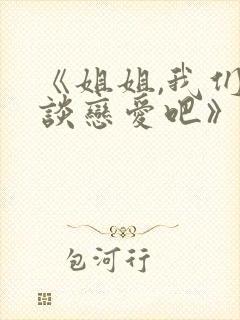 《姐姐,我们
談戀愛吧》
包河行